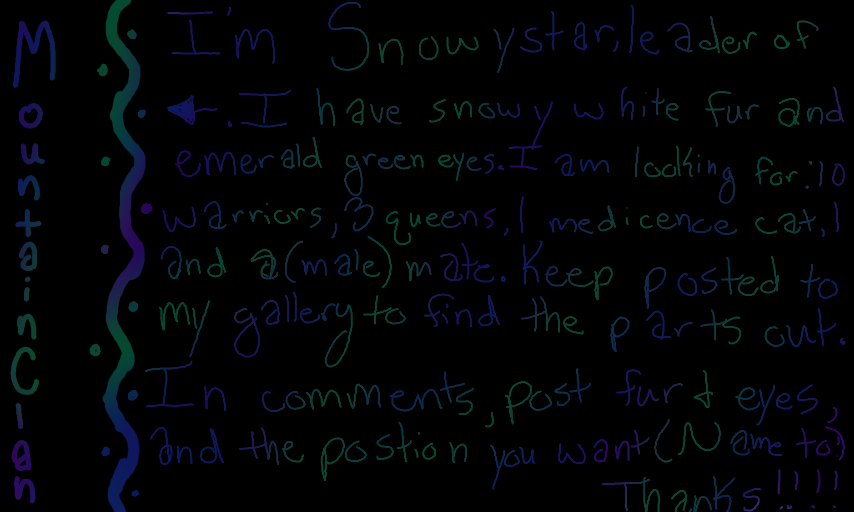 MountainClan
I'm Snowystar, leader of
. I have snowy white fur and
emerald green eyes. I am looking for: 10
warriors, 3 queens, 1 medicence cat, 1
and a (male) mate. Keep posted to
my gallery to find the parts out.
In comments, post fur & eyes,
and the postion you want (Name to)
Thanks!!!!